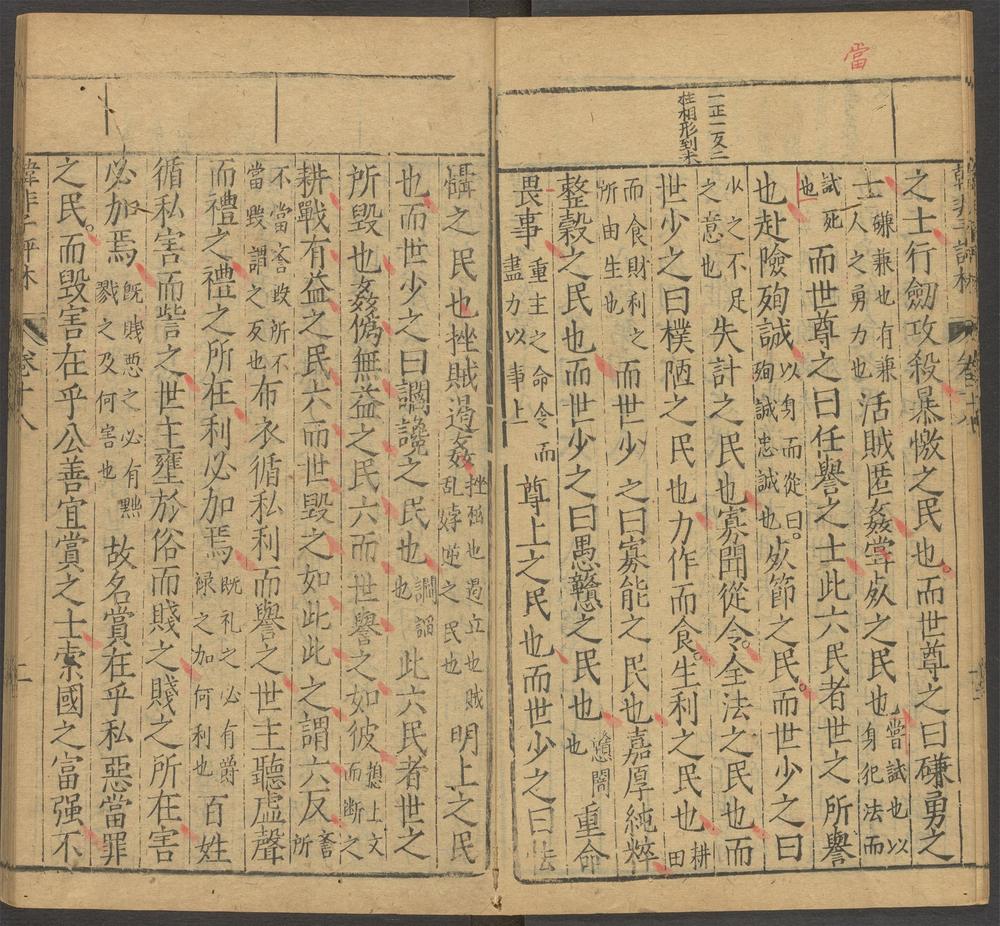 當
一正一反二
柱相形到末
韓非子評林 卷十八
之士行劒攻殺暴憿之民也而世尊之曰磏勇之
士磏兼也有兼人之勇力也活賊匿姦當死之民也嘗試也以身犯法而
試死也而世尊之曰任譽之士此六民者世之所譽
也赴險殉誠以身而從曰殉誠忠誠也死節之民而世少之曰
少之不足之意也失計之民也寡聞從令全法之民也而
世少之曰樸陋之民也力作而食生利之民也耕田
而食財利之所由生也而世少之曰寡能之民也嘉厚純粹
整榖之民也而世少之曰愚戇之民也戇闇也重命
畏事重主之命令而盡力以事上尊上之民也而世少之曰怯
懾之民也挫賊遏姦挫折也遏立也賊乱姦悖逆之民也明上之民
也而世少之曰讇讒之民也讇謟也此六民者世之
所毀也姦偽無益之民六而世譽之如彼據上文而断之
耕戰有益之民六而世毀之如此此之謂六反譽所
不當譽毀所不當毀謂之反也布衣循私利而譽之世主聽虛聲
而禮之禮之所在利必加焉既礼之必有爵禄之加何利也百姓
循私害而訾之世主壅於俗而賤之賤之所在害
必加焉既賤惡之必有黜戮之及何害也故名賞在乎私惡當罪
之民而毀害在乎公善宜賞之士索國之富强不
韓非子評林 卷十八